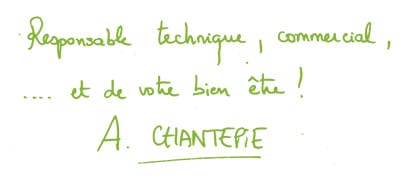 Responsable technique, commercial,
.... et de votre bien être !
A. CHANTEPIE